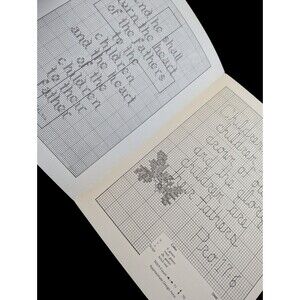 And he shall
turn the heart
of the fathers
to the
children
and the heart
of the
children
to their
father
Children
children
crown of o
and the glory
children are
their fathers
Prov 17 6